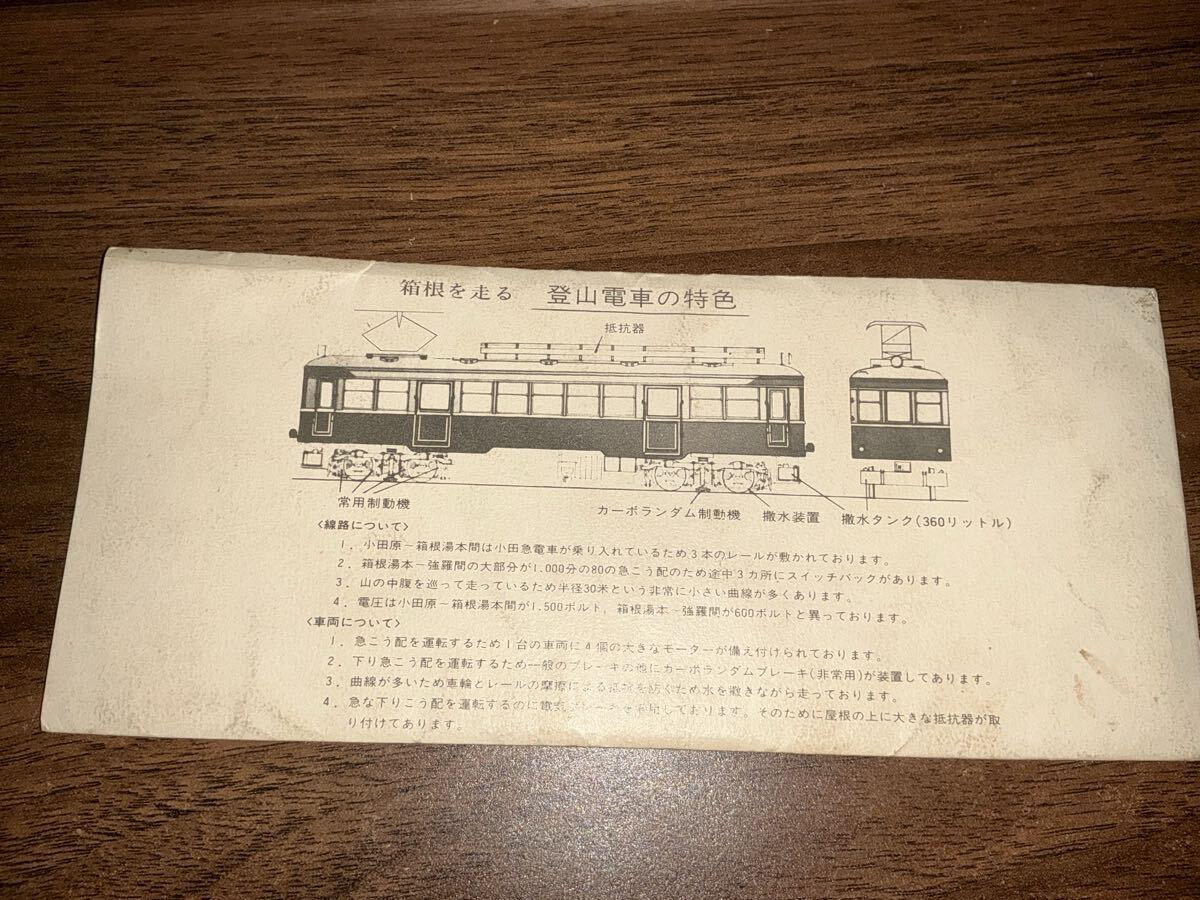 箱根を走る 登山電車の特色
抵抗器
常用制動機
カーボランダム制動機 撒水装置 撒水タンク(360リットル)
〈線路について〉
1. 小田原~箱根湯本間は小田急電車が乗り入れているため3本のレールが敷かれております。
2. 箱根湯本~強羅間の大部分が1,000分の80の急こう配のため途中3カ所にスイッチバックがあります。
3. 山の中腹を巡って走っているため半径30米という非常に小さい曲線が多くあります。
4. 電圧は小田原~箱根湯本間が1,500ボルト, 箱根湯本~強羅間が600ボルトと異っております。
〈車両について〉
1. 急こう配を運転するため1台の車両に4個の大きなモーターが備え付けられております。
2. 下り急こう配を運転するため一般のブレーキの他にカーボランダムブレーキ(非常用)が装置してあります。
3. 曲線が多いため車輪とレールの摩擦による抵抗を防ぐため水を撒きながら走っております。
4. 急な下りこう配を運転するのに電気ブレーキを使用しております。そのために屋根の上に大きな抵抗器が取
り付けてあります。